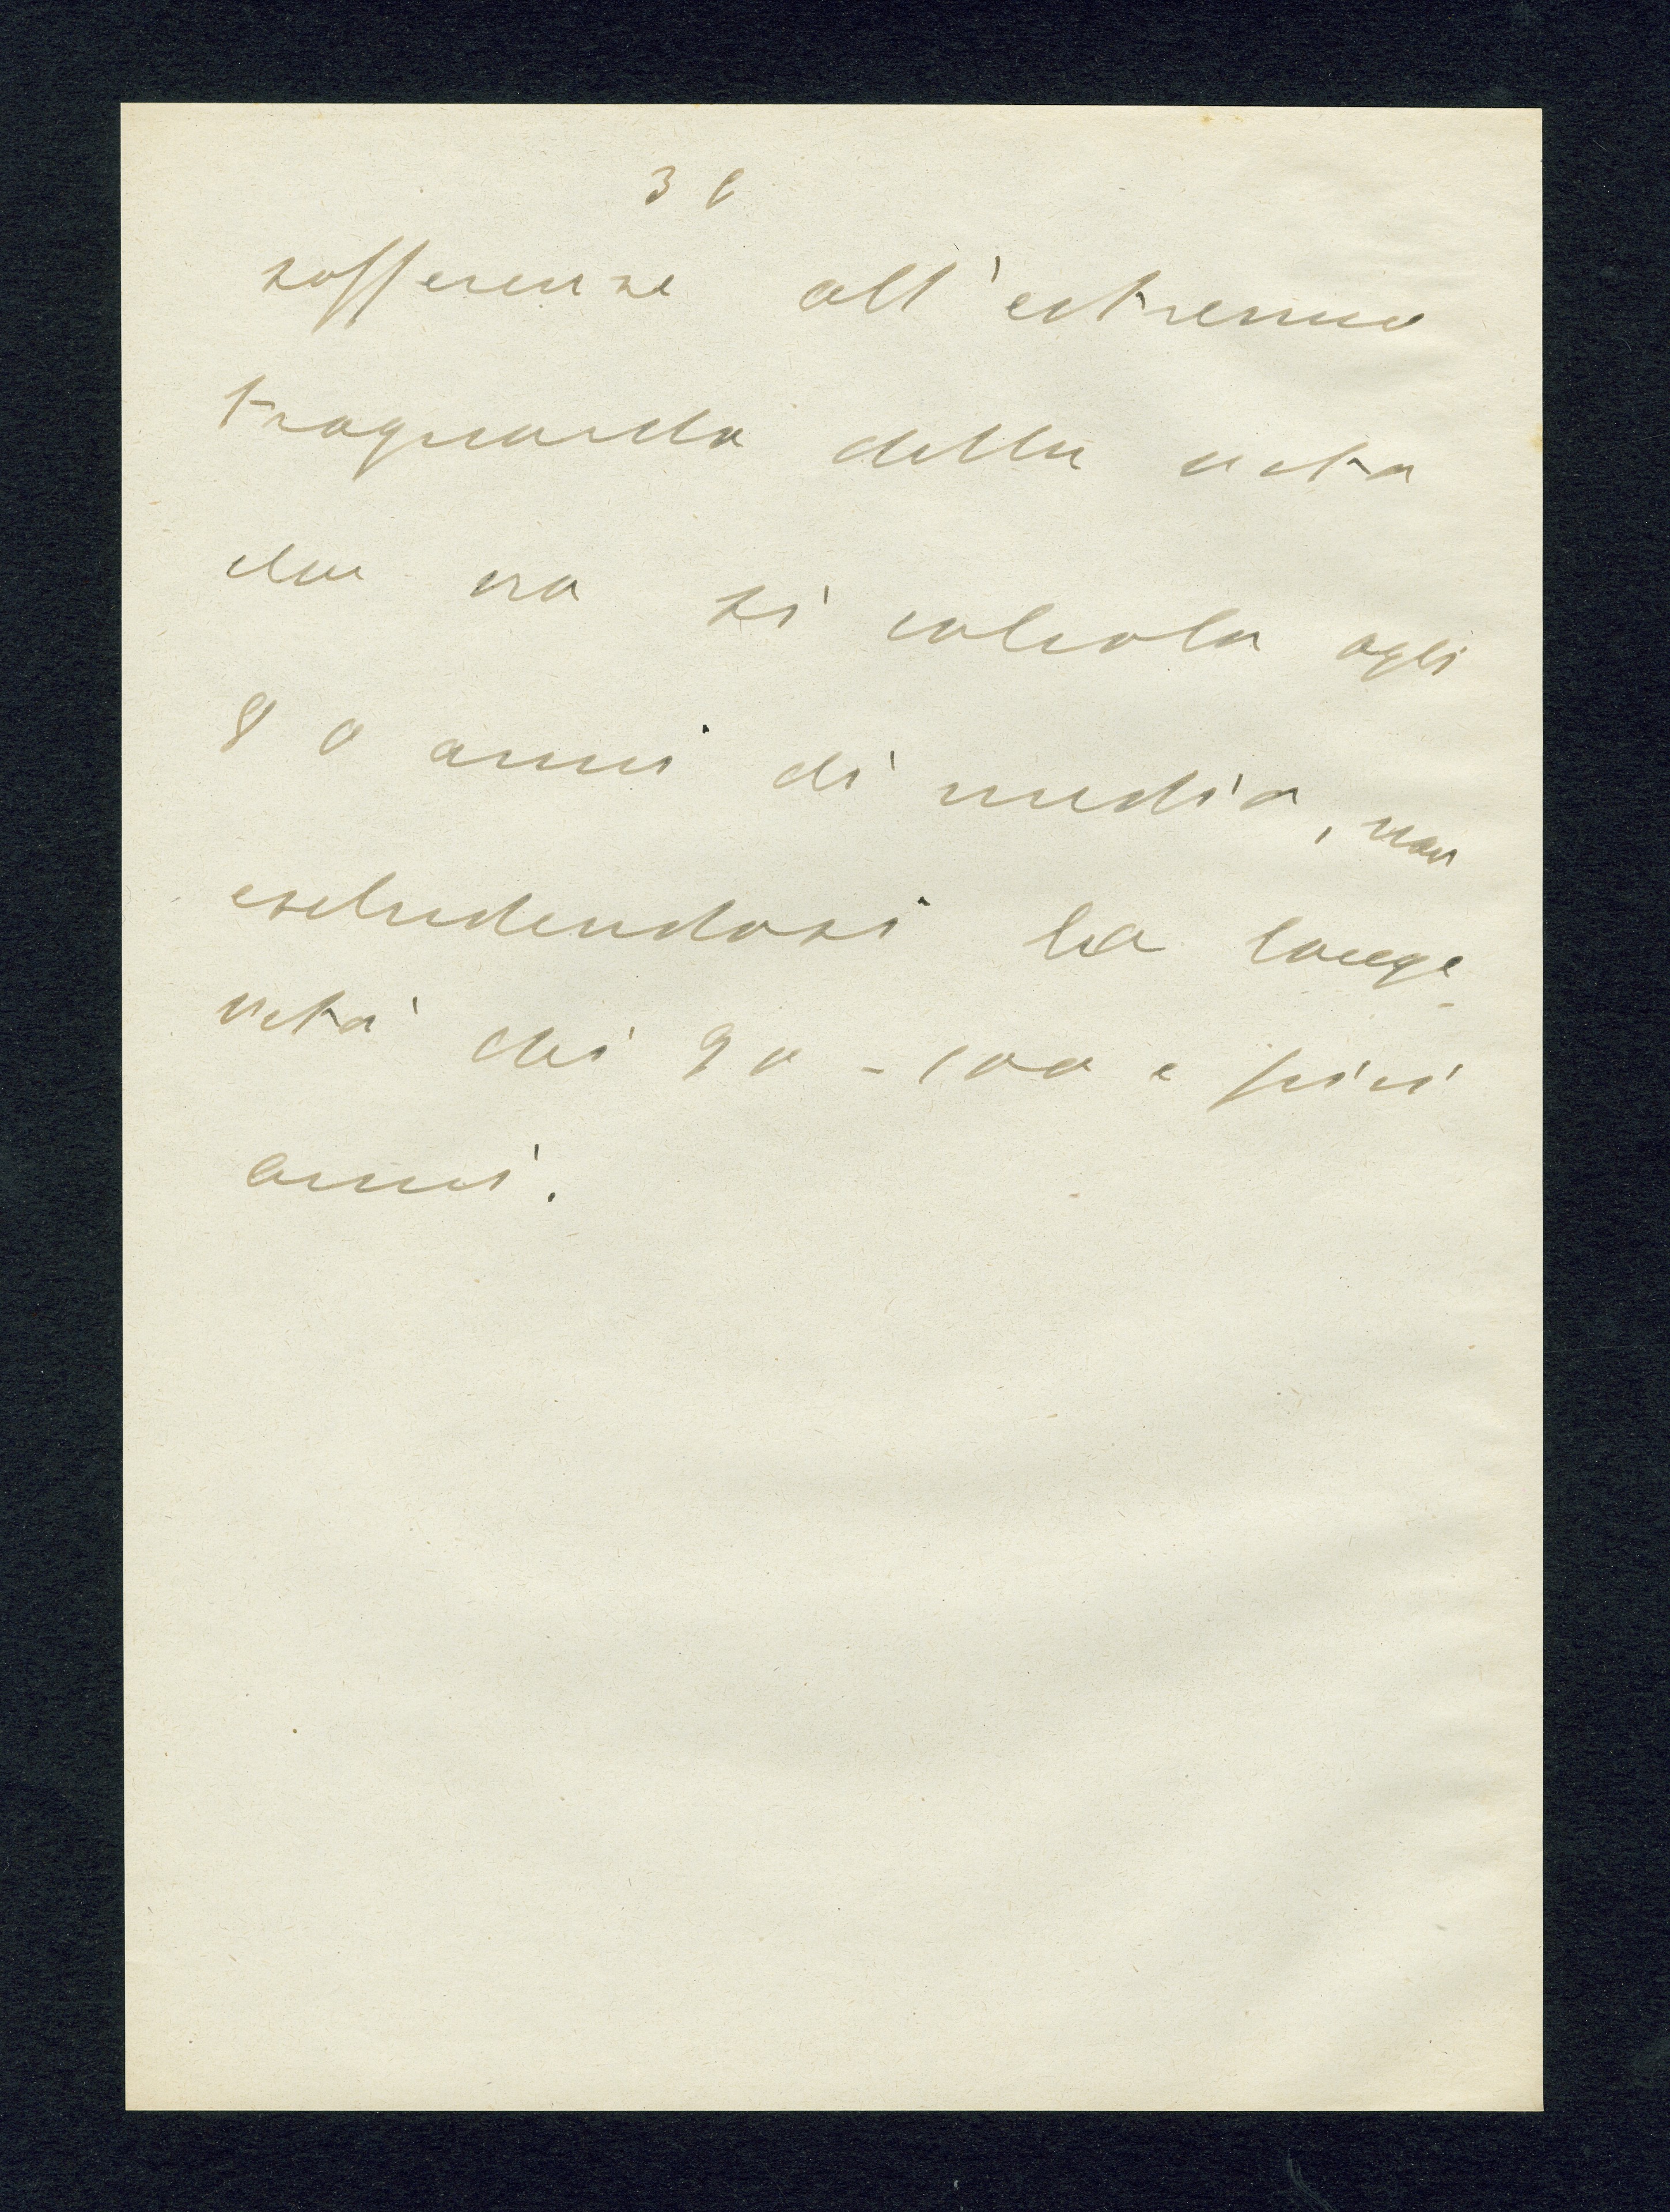 36
sofferenze all'estremo
traguardo della vita
che ora si calcola agli
80 anni di media, non
escludendosi la longe-
vità dei 90-100 e più
anni.